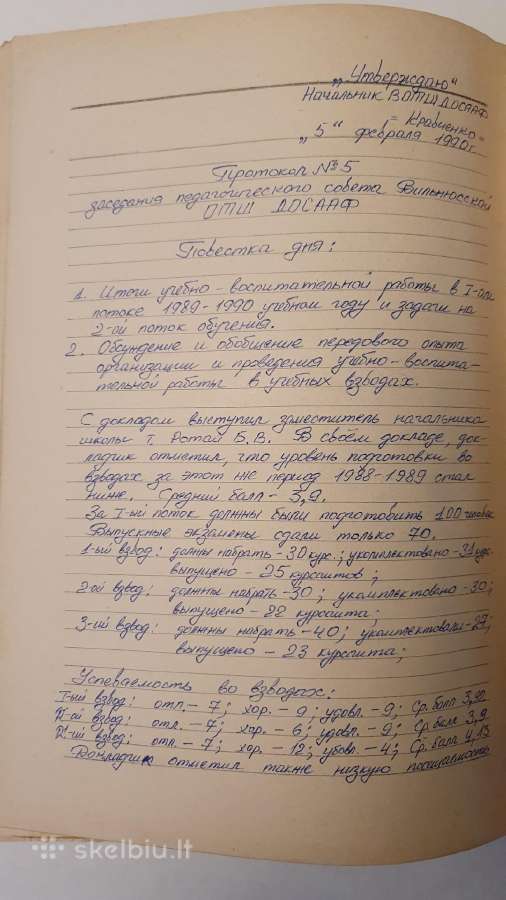 „Утверждаю“
Начальник ВОТШ ДОСААФ
= Кравченко =
„5“ февраля 1990г.
Протокол № 5
заседания педагогического совета Вильнюсской
ОТШ ДОСААФ
Повестка дня:
1. Итоги учебно-воспитательной работы в I-ом
потоке 1989-1990 учебном году и задачи на
2-ой поток обучения.
2. Обсуждение и обобщение передового опыта
организации и проведения учебно-воспита-
тельной работы в учебных взводах.
С докладом выступил заместитель начальника
школы т. Ротай Б.В. В своём докладе, док-
ладчик отметил, что уровень подготовки во
взводах за этот же период 1988-1989 стал
ниже. Средний балл - 3,9.
За I-ый поток должны были подготовить 100 человек
Выпускные экзамены сдали только 70.
1-ый взвод: должны набрать - 30 курс.; укомплектовано - 31 курс
выпущено - 25 курсантов;
2-ой взвод: должны набрать - 30; укомплектовано - 30;
выпущено - 22 курсанта;
3-ий взвод: должны набрать - 40; укомплектовали - 27;
выпущено - 23 курсанта;
Успеваемость во взводах:
I-ый взвод: отл. - 7; хор. - 9; удовл. - 9; Ср. балл 3,92
II-ой взвод: отл. - 7; хор. - 6; удовл. - 9; Ср. балл 3,9
III-ий взвод: отл. - 7; хор. - 12; удовл. - 4; Ср. балл 4,13
Докладчик отметил также низкую посещаемость
skelbiu.lt